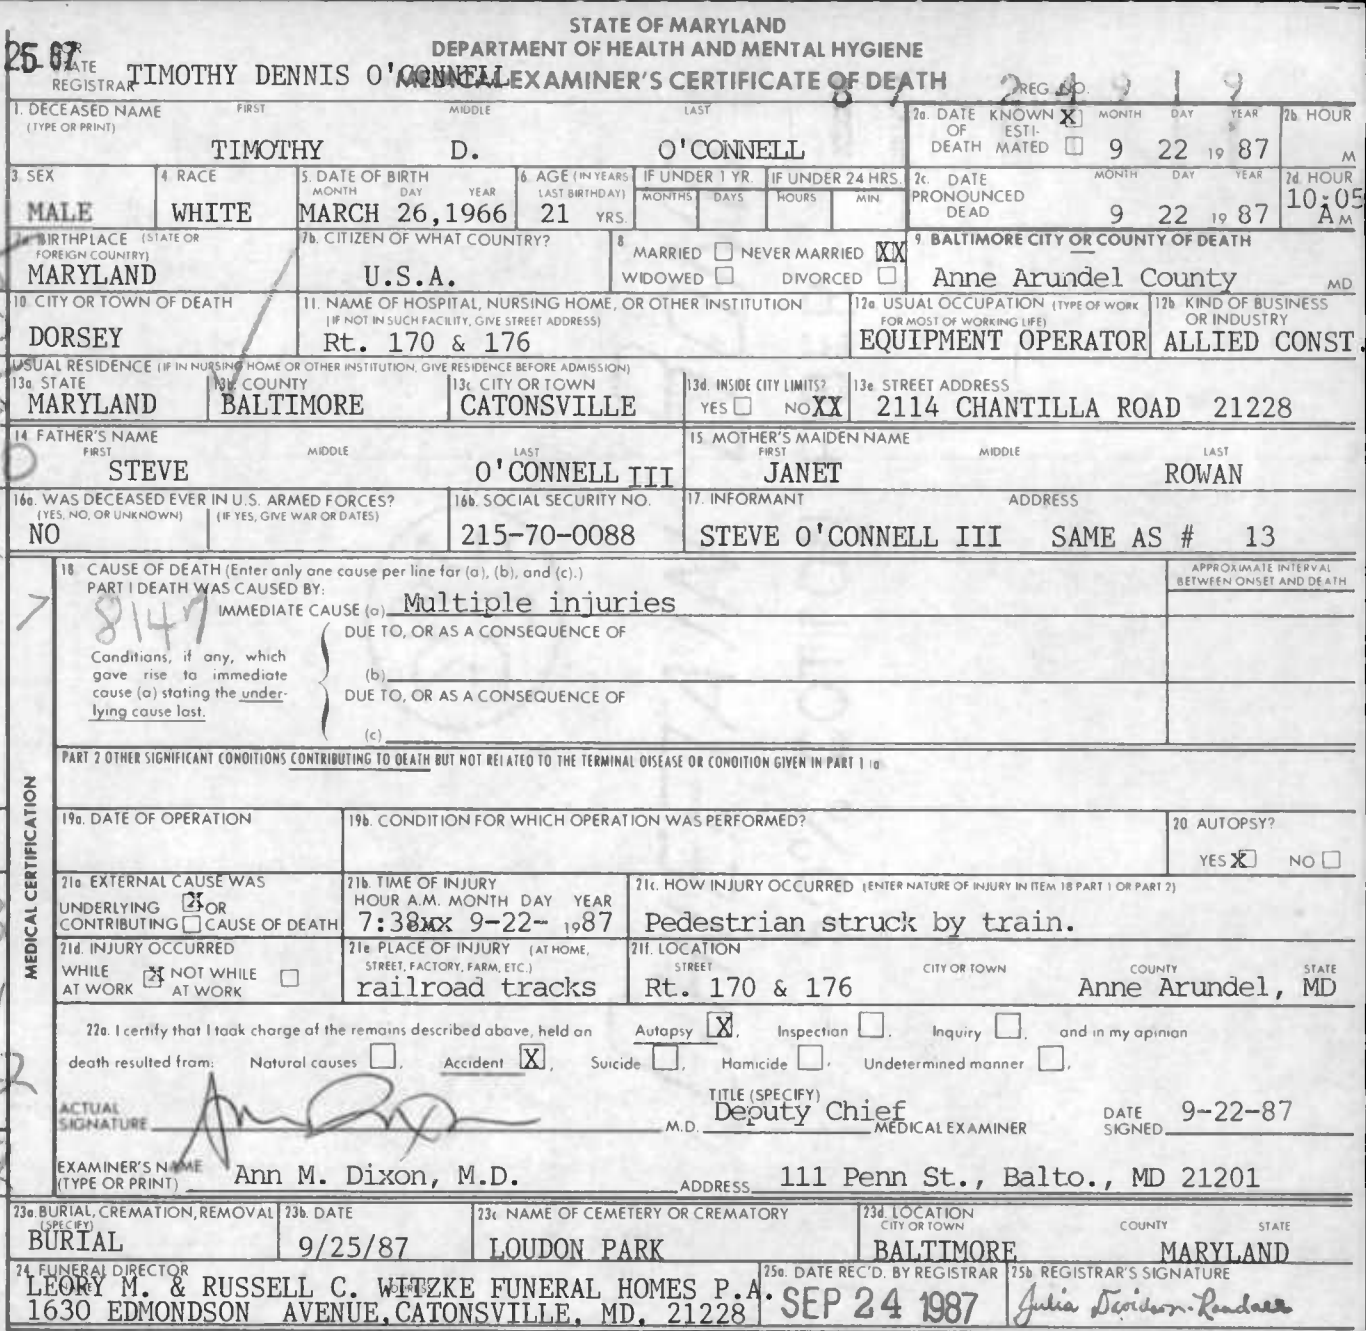 STATE OF MARYLAND
DEPARTMENT OF HEALTH AND MENTAL HYGIENE
EXAMINER'S CERTIFICATE OF DEATH
25 87
REGISTRAR TIMOTHY DENNIS O'CONNELL
REG. NO. 87 24919
1. DECEASED NAME (TYPE OR PRINT) FIRST MIDDLE LAST
TIMOTHY D. O'CONNELL
2a. DATE OF DEATH KNOWN X ESTIMATED MONTH DAY YEAR
9 22 19 87
2b. HOUR
M
3. SEX
MALE
4. RACE
WHITE
5. DATE OF BIRTH
MONTH DAY YEAR
MARCH 26,1966
6. AGE (IN YEARS LAST BIRTHDAY)
21 YRS.
IF UNDER 1 YR. IF UNDER 24 HRS.
MONTHS DAYS HOURS MIN.
2c. DATE PRONOUNCED DEAD MONTH DAY YEAR
9 22 19 87
2d. HOUR
10:05 A M
7a. BIRTHPLACE (STATE OR FOREIGN COUNTRY)
MARYLAND
7b. CITIZEN OF WHAT COUNTRY?
U.S.A.
8. MARRIED NEVER MARRIED XX
WIDOWED DIVORCED
9. BALTIMORE CITY OR COUNTY OF DEATH
Anne Arundel County MD
10. CITY OR TOWN OF DEATH
DORSEY
11. NAME OF HOSPITAL, NURSING HOME, OR OTHER INSTITUTION
(IF NOT IN SUCH FACILITY, GIVE STREET ADDRESS)
Rt. 170 & 176
12a. USUAL OCCUPATION (TYPE OF WORK FOR MOST OF WORKING LIFE)
EQUIPMENT OPERATOR
12b. KIND OF BUSINESS OR INDUSTRY
ALLIED CONST.
USUAL RESIDENCE (IF IN NURSING HOME OR OTHER INSTITUTION, GIVE RESIDENCE BEFORE ADMISSION)
13a. STATE
MARYLAND
13b. COUNTY
BALTIMORE
13c. CITY OR TOWN
CATONSVILLE
13d. INSIDE CITY LIMITS?
YES NO XX
13e. STREET ADDRESS
2114 CHANTILLA ROAD 21228
14. FATHER'S NAME
FIRST MIDDLE LAST
STEVE O'CONNELL III
15. MOTHER'S MAIDEN NAME
FIRST MIDDLE LAST
JANET ROWAN
16a. WAS DECEASED EVER IN U.S. ARMED FORCES?
(YES, NO, OR UNKNOWN) (IF YES, GIVE WAR OR DATES)
NO
16b. SOCIAL SECURITY NO.
215-70-0088
17. INFORMANT ADDRESS
STEVE O'CONNELL III SAME AS # 13
MEDICAL CERTIFICATION
18. CAUSE OF DEATH (Enter only one cause per line for (a), (b), and (c).)
APPROXIMATE INTERVAL BETWEEN ONSET AND DEATH
PART I DEATH WAS CAUSED BY:
IMMEDIATE CAUSE (a) Multiple injuries
8147
DUE TO, OR AS A CONSEQUENCE OF
Conditions, if any, which
gave rise to immediate
cause (a) stating the under-
lying cause last.
(b)
DUE TO, OR AS A CONSEQUENCE OF
(c)
PART 2 OTHER SIGNIFICANT CONDITIONS CONTRIBUTING TO DEATH BUT NOT RELATED TO THE TERMINAL DISEASE OR CONDITION GIVEN IN PART 1 (a
19a. DATE OF OPERATION
19b. CONDITION FOR WHICH OPERATION WAS PERFORMED?
20 AUTOPSY?
YES X NO
21a. EXTERNAL CAUSE WAS
UNDERLYING X OR
CONTRIBUTING CAUSE OF DEATH
21b. TIME OF INJURY
HOUR A.M. MONTH DAY YEAR
7:38 9-22- 1987
21c. HOW INJURY OCCURRED (ENTER NATURE OF INJURY IN ITEM 18 PART 1 OR PART 2)
Pedestrian struck by train.
21d. INJURY OCCURRED
WHILE AT WORK X NOT WHILE AT WORK
21e. PLACE OF INJURY (AT HOME, STREET, FACTORY, FARM, ETC.)
railroad tracks
21f. LOCATION
STREET CITY OR TOWN COUNTY STATE
Rt. 170 & 176 Anne Arundel, MD
22a. I certify that I took charge of the remains described above, held an Autopsy X, Inspection, Inquiry, and in my opinion
death resulted from: Natural causes, Accident X, Suicide, Homicide, Undetermined manner.
ACTUAL SIGNATURE Ann Dixon M.D.
TITLE (SPECIFY)
Deputy Chief MEDICAL EXAMINER
DATE SIGNED 9-22-87
EXAMINER'S NAME (TYPE OR PRINT) Ann M. Dixon, M.D. ADDRESS 111 Penn St., Balto., MD 21201
23a. BURIAL, CREMATION, REMOVAL (SPECIFY)
BURIAL
23b. DATE
9/25/87
23c. NAME OF CEMETERY OR CREMATORY
LOUDON PARK
23d. LOCATION
CITY OR TOWN COUNTY STATE
BALTIMORE MARYLAND
24. FUNERAL DIRECTOR
LEORY M. & RUSSELL C. WITZKE FUNERAL HOMES P.A.
1630 EDMONDSON AVENUE,CATONSVILLE, MD. 21228
25a. DATE REC'D. BY REGISTRAR
SEP 24 1987
25b. REGISTRAR'S SIGNATURE
Julia Davidson-Randall